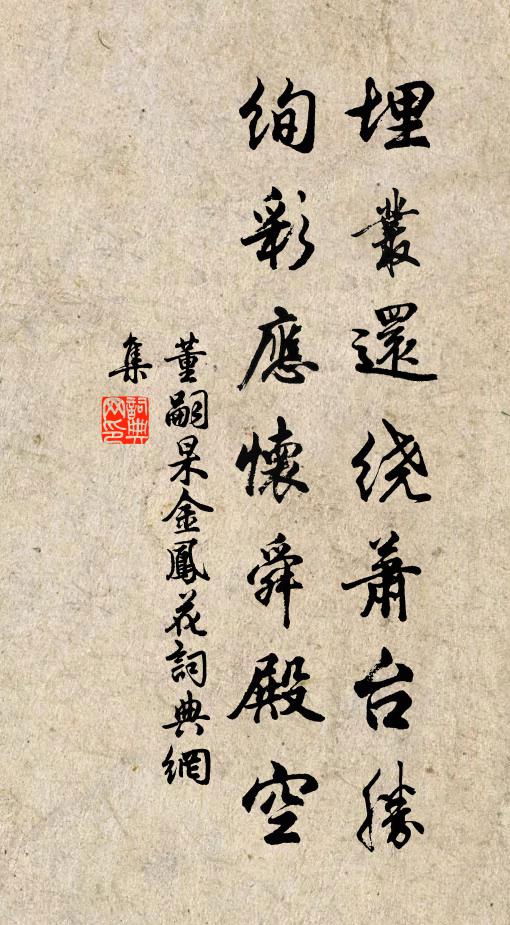 埋叢還绕蕭台勝
絢彩應懷舜殿空
董嗣杲金鳳花詞典網
集
詞典网印